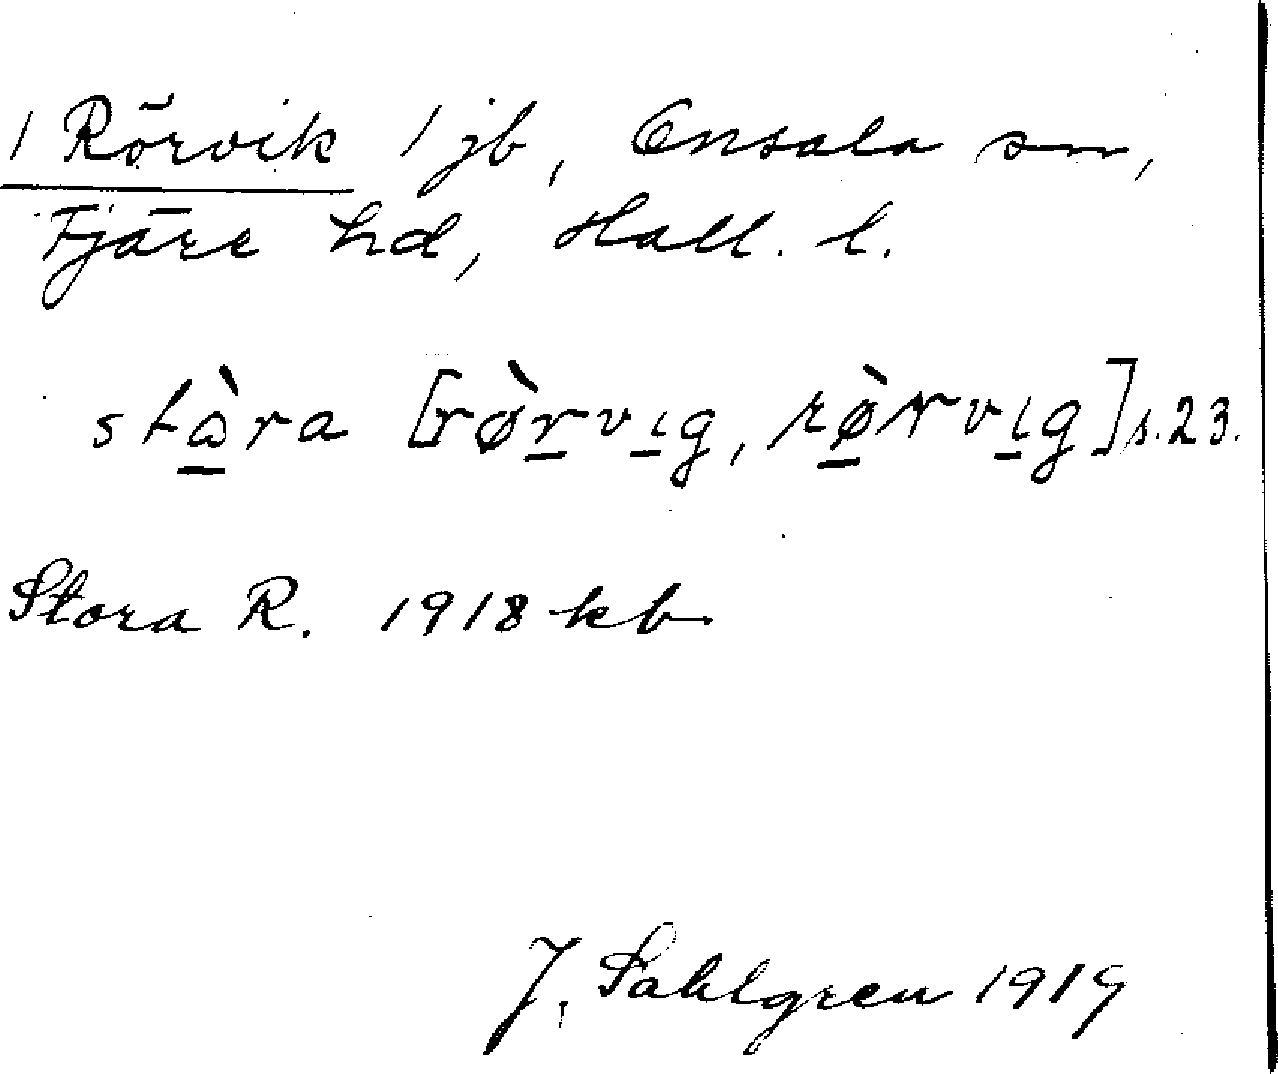 1 Rörvik 1 jb, Onsala sn,
Fjäre hd, Hall. l.
stὼ̲ra [rø̀r̲vı̲g, rø̲̀rvı̲g] s. 23.
Stora R. 1918 kb
J. Sahlgren 1919